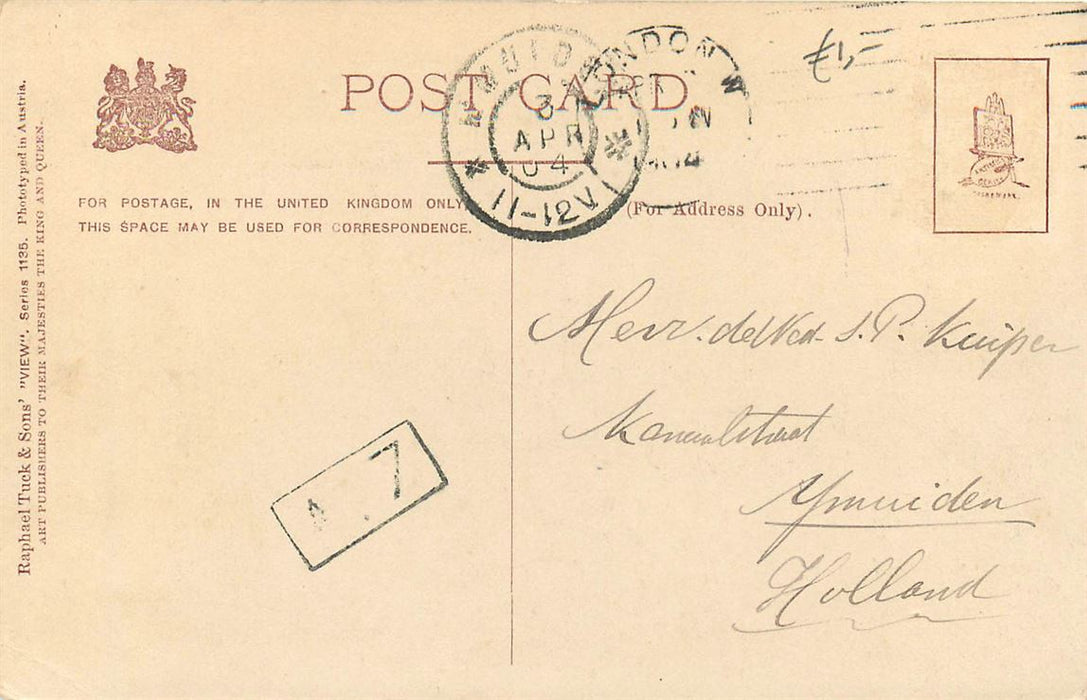 POST CARD
FOR POSTAGE, IN THE UNITED KINGDOM ONLY,
THIS SPACE MAY BE USED FOR CORRESPONDENCE.
(For Address Only).
Raphael Tuck & Sons' "VIEW". Series 1135. Phototyped in Austria.
ART PUBLISHERS TO THEIR MAJESTIES THE KING AND QUEEN.
3
APR
04
11-12V
LONDON W
£1,-
A.7
S. P. Kuiper
Kanaalstraat
Ymuiden
Holland